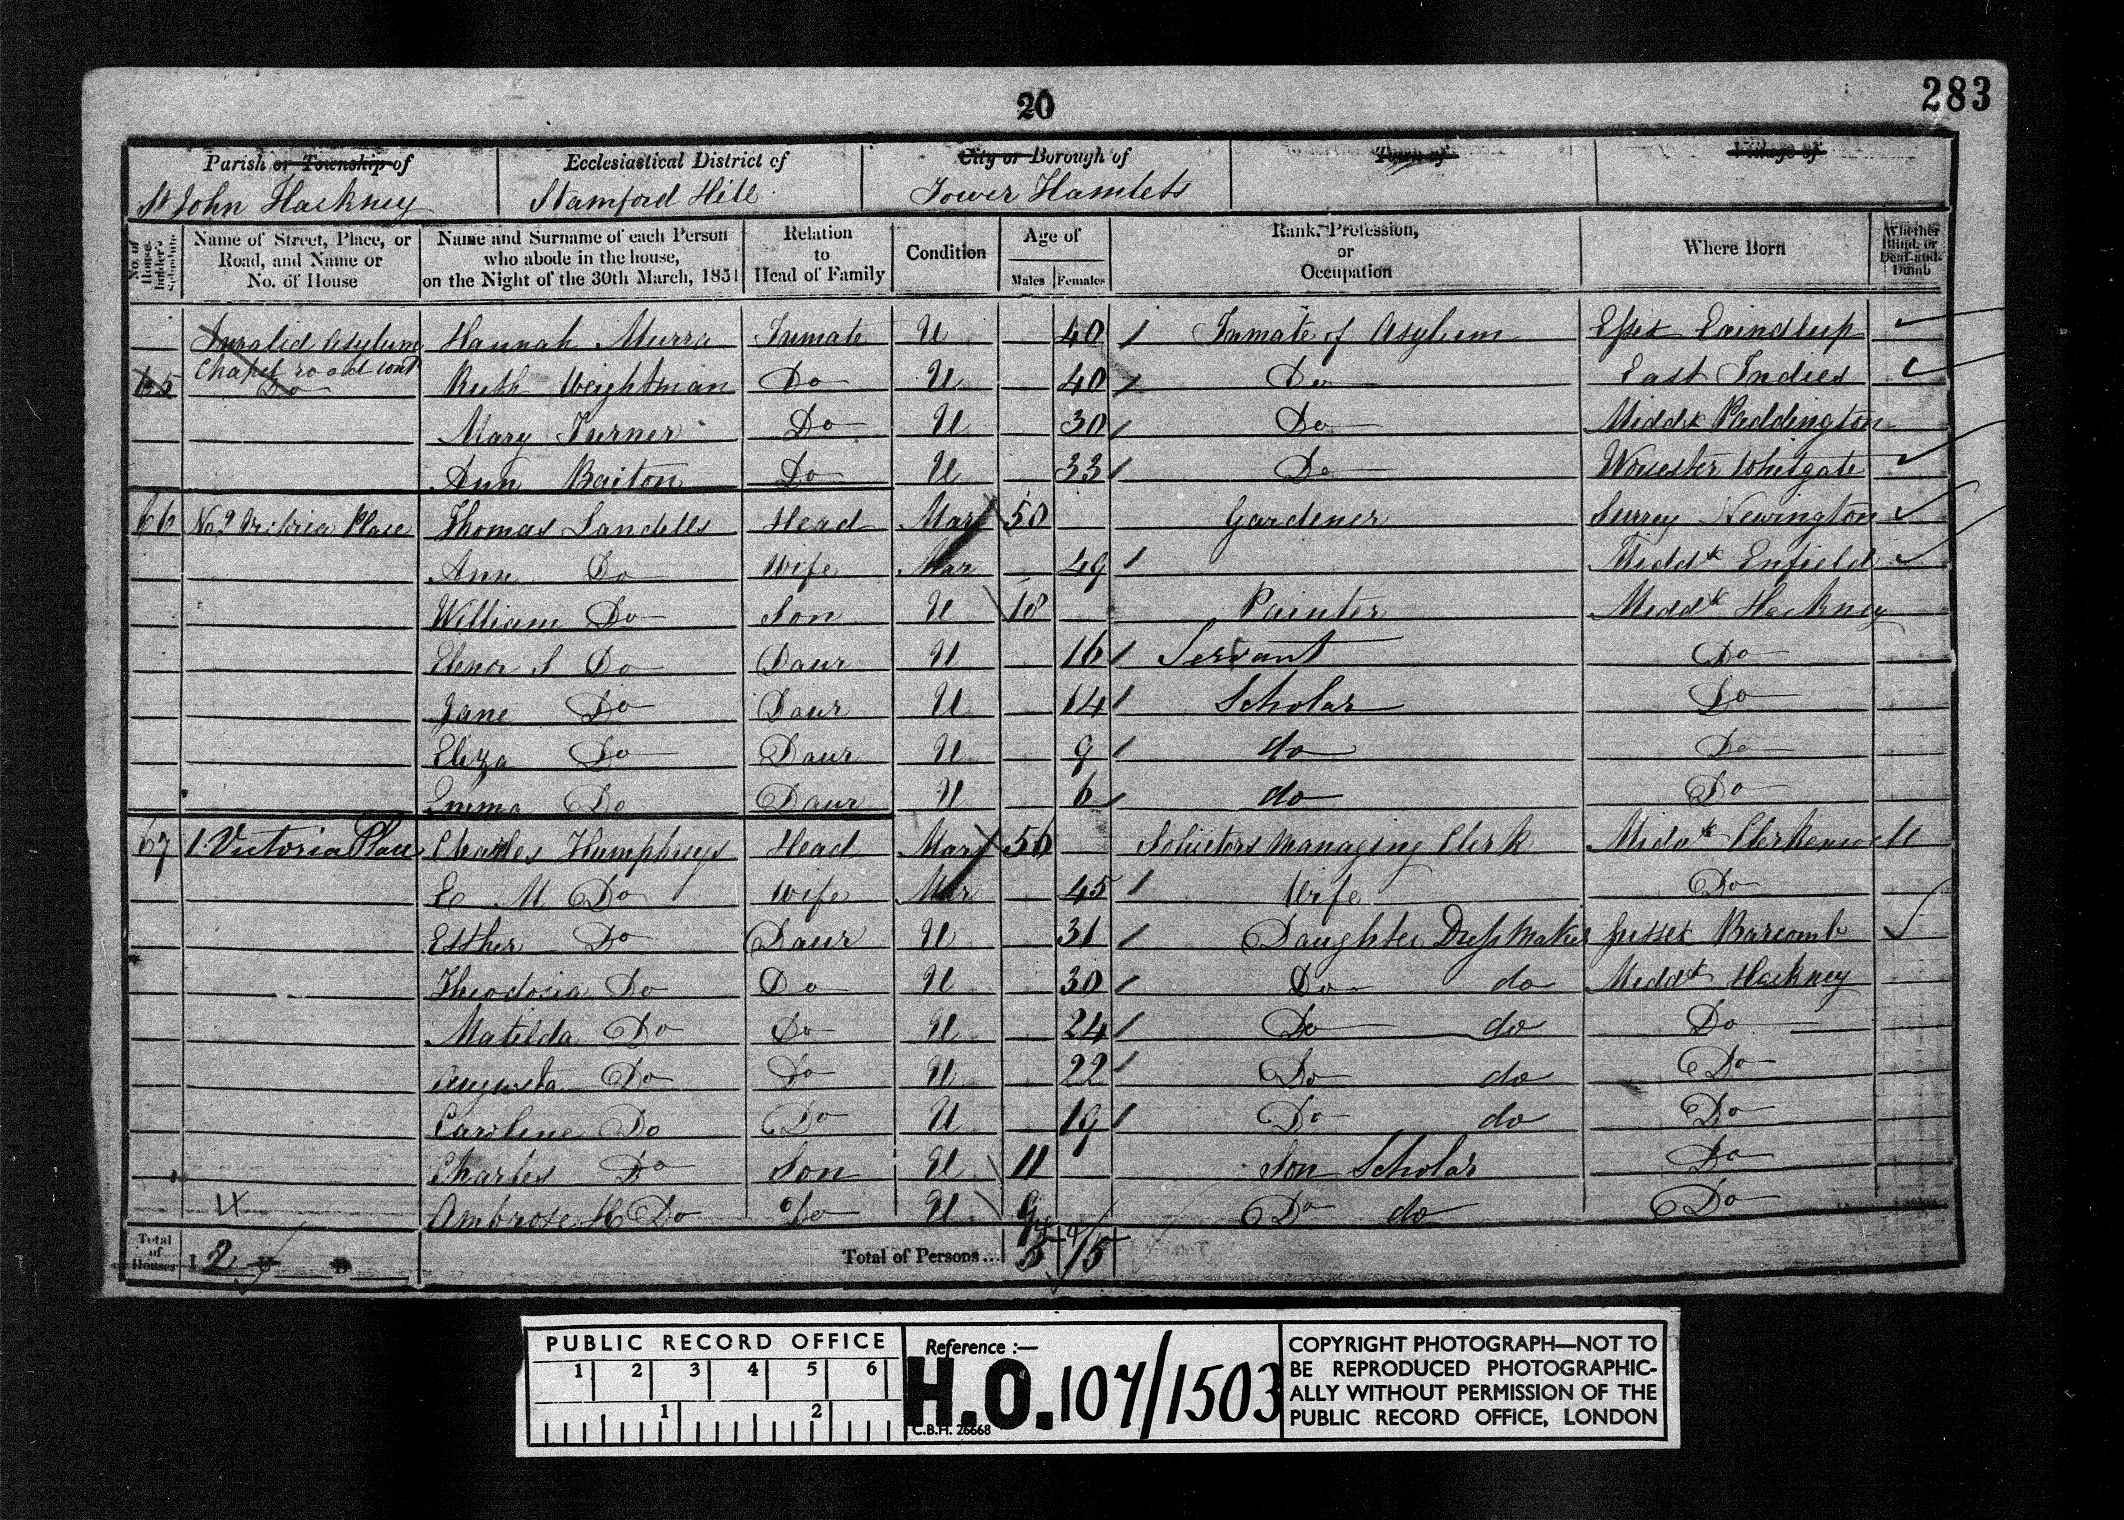 20
283
Parish or Township of
Ecclesiastical District of
City or Borough of
Town of
Village of
St John Hackney
Stamford Hill
Tower Hamlets
No. of House-holder's Schedule
Name of Street, Place, or Road, and Name or No. of House
Name and Surname of each Person who abode in the house, on the Night of the 30th March, 1851
Relation to Head of Family
Condition
Age of
Males
Females
Rank, Profession, or Occupation
Where Born
Whether Blind, or Deaf-and-Dumb
Invalid Asylum Hannah Inmate U 40 Inmate of Asylum Essex
Chapel road cont
65 Do Ruth Weightman Do U 40 Do East Indies
Mary Turner Do U 30 Do Middx Paddington
Ann Do U 33 Do Worcester
66 No. 2 Victoria Place Thomas Landells Head Mar 50 Gardener Surrey Newington
Ann Do Wife Mar 49 Middx Enfield
William Do Son U 18 Painter Middx Hackney
Elenor S Do Daur U 16 Servant Do
Jane Do Daur U 14 Scholar Do
Eliza Do Daur U 9 do Do
Emma Do Daur U 6 do Do
67 1 Victoria Place Charles Humphreys Head Mar 56 Solicitors Managing Clerk Middx Clerkenwell
E M Do Wife Mar 45 Wife Do
Esther Do Daur U 31 Daughter Dress Maker Sussex Barcomb
Theodosia Do Do U 30 Do do Middx Hackney
Matilda Do Do U 24 Do do Do
Augusta Do Do U 22 Do do Do
Caroline Do Do U 19 Do do Do
Charles Do Son U 11 Son Scholar Do
Ambrose H Do Do U 9 Do do Do
Total of Houses I 2 U B
Total of Persons... 5 15
PUBLIC RECORD OFFICE
1 2 3 4 5 6
1 2
Reference :—
H.O. 107/1503
C.B.H. 26668
COPYRIGHT PHOTOGRAPH—NOT TO
BE REPRODUCED PHOTOGRAPHIC-
ALLY WITHOUT PERMISSION OF THE
PUBLIC RECORD OFFICE, LONDON